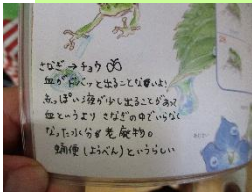 さなぎ→チョウ
血がドバッと出ることな無いよ!
赤っぽい液が少し出ることがあるが
血というより さなぎの中でいらなく
なった水分や老廃物。
蛹便(ようべん)というらしい